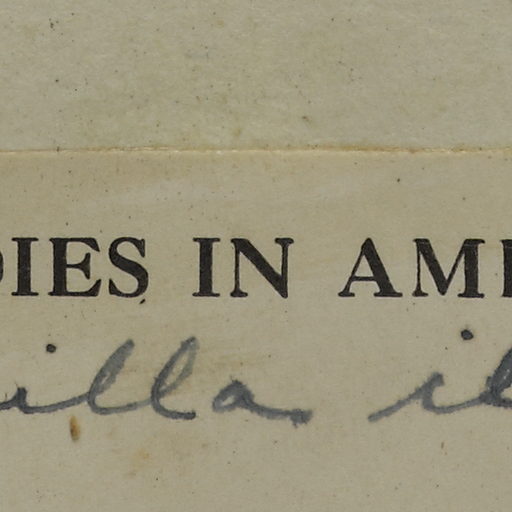 DIES IN AME
illa il